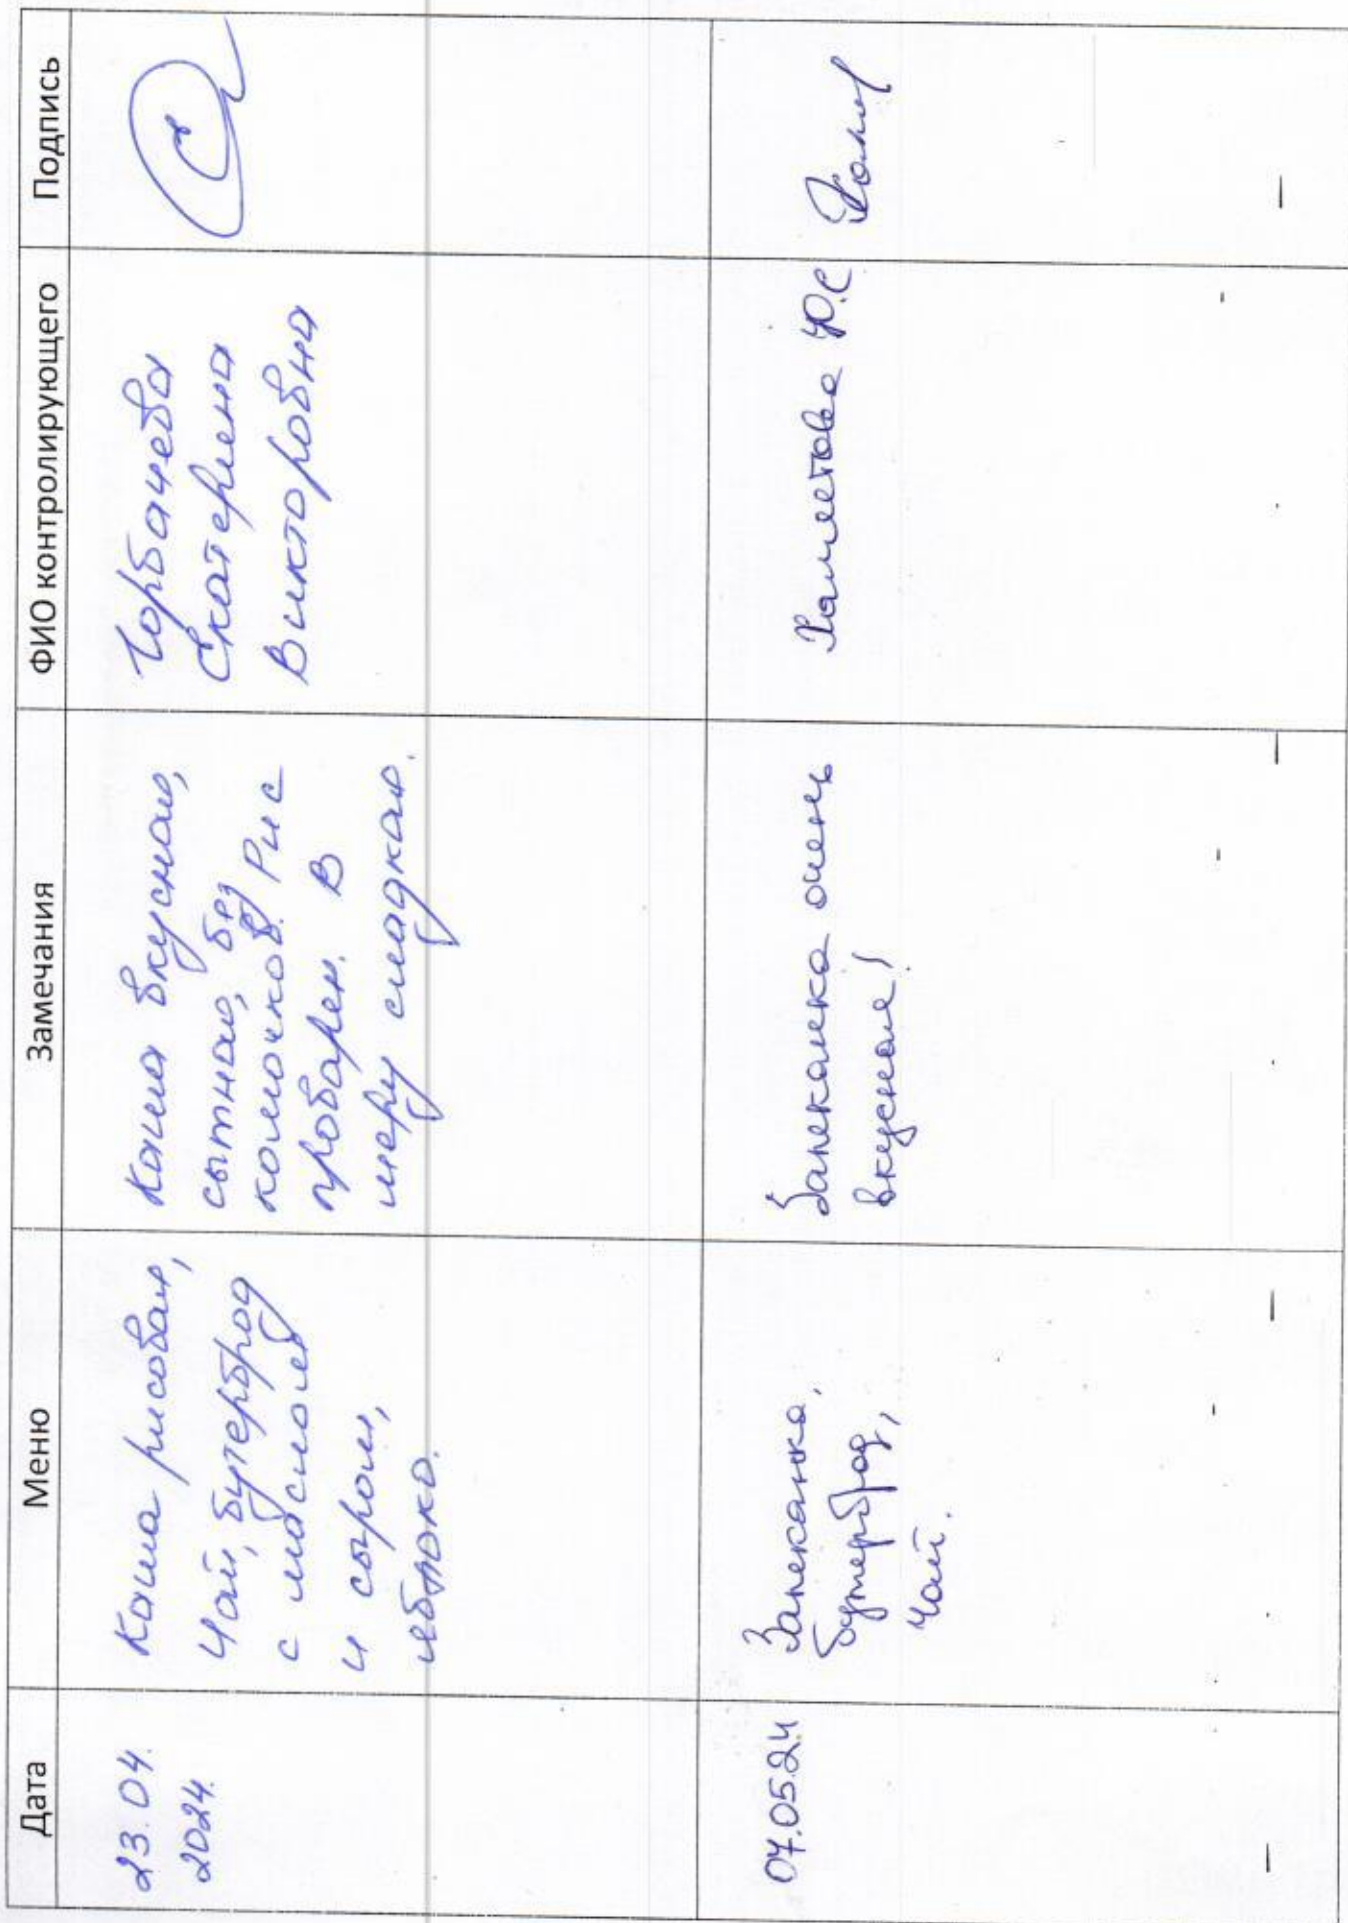 Дата Меню Замечания ФИО контролирующего Подпись
23.04.
2024.
Каша рисовая,
Чай, бутерброд
с маслом
и сыром,
яблоко.
Каша вкусная,
сытная, без
комочков. Рис
проварен. В
меру сладкая.
Горбачева
Екатерина
Викторовна
07.05.24
Запеканка,
бутерброд,
чай.
Запеканка очень
вкусная!
Хаметова Ю.С